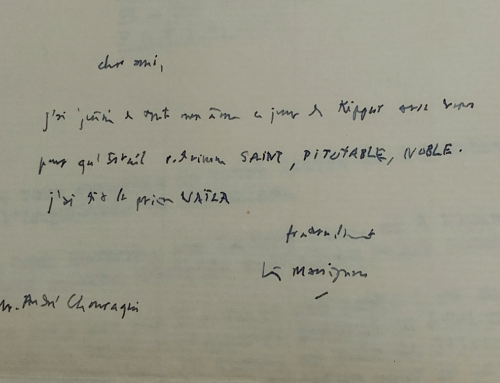 cher ami,
j'ai jeûné de toute mon âme ce jour de Kippur avec vous
pour qu'Israël redevienne SAINT, PITOYABLE, NOBLE.
j'ai dit la prière
fraternellement
Massignon
M. André Chouraqui